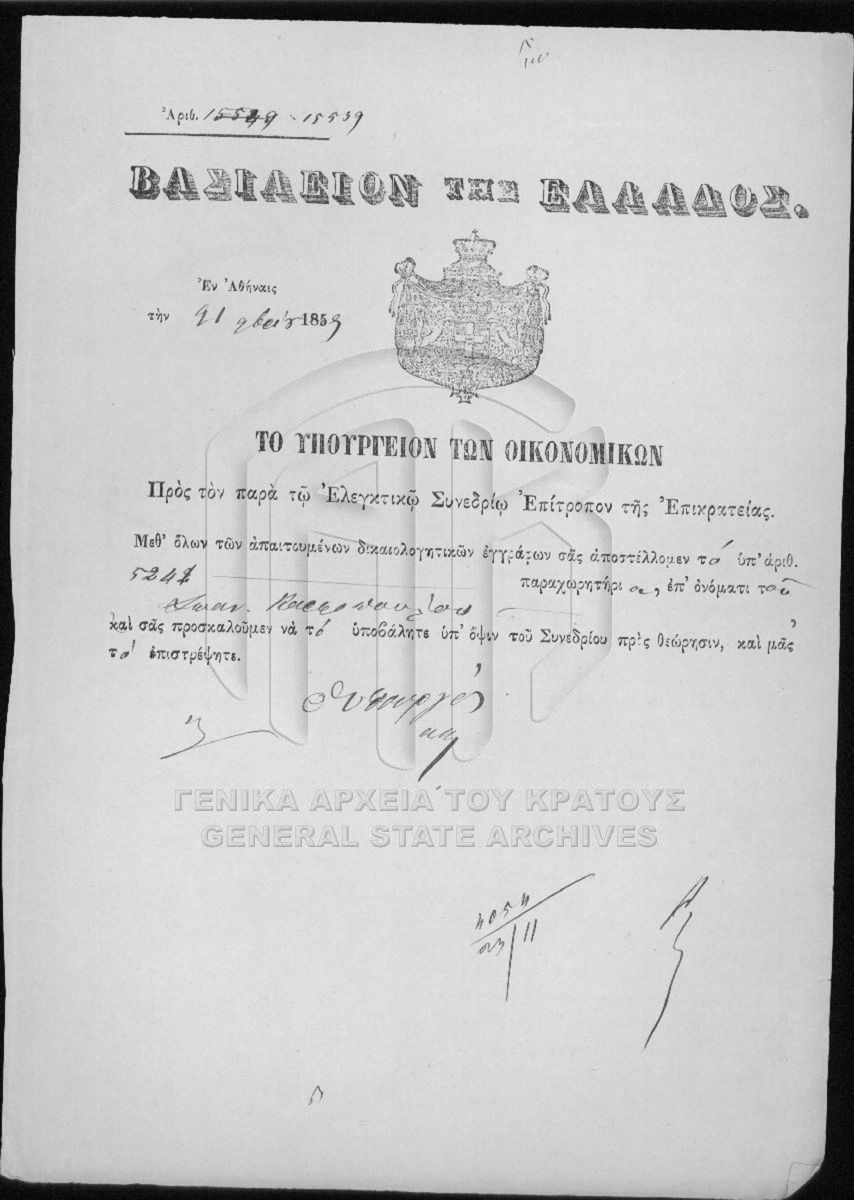 Ἀριθ. 15529 - 15539
ΒΑΣΙΛΕΙΟΝ ΤΗΣ ΕΛΛΑΔΟΣ.
Ἐν Ἀθήναις
τὴν 21 9βρίου 1859
ΤΟ ΥΠΟΥΡΓΕΙΟΝ ΤΩΝ ΟΙΚΟΝΟΜΙΚΩΝ
Πρὸς τὸν παρὰ τῷ Ἐλεγκτικῷ Συνεδρίῳ Ἐπίτροπον τῆς Ἐπικρατείας.
Μεθ' ὅλων τῶν ἀπαιτουμένων δικαιολογητικῶν ἐγγράφων σᾶς ἀποστέλλομεν τὸ ὑπ' ἀριθ.
παραχωρητήριον, ἐπ' ὀνόματι τοῦ
Ἰωαν.
καὶ σᾶς προσκαλοῦμεν νὰ τὸ ὑποβάλητε ὑπ' ὄψιν τοῦ Συνεδρίου πρὸς θεώρησιν, καὶ μᾶς
τὸ ἐπιστρέψητε.
Ὁ Ὑπουργός
ΓΕΝΙΚΑ ΑΡΧΕΙΑ ΤΟΥ ΚΡΑΤΟΥΣ
GENERAL STATE ARCHIVES
4054
23/11